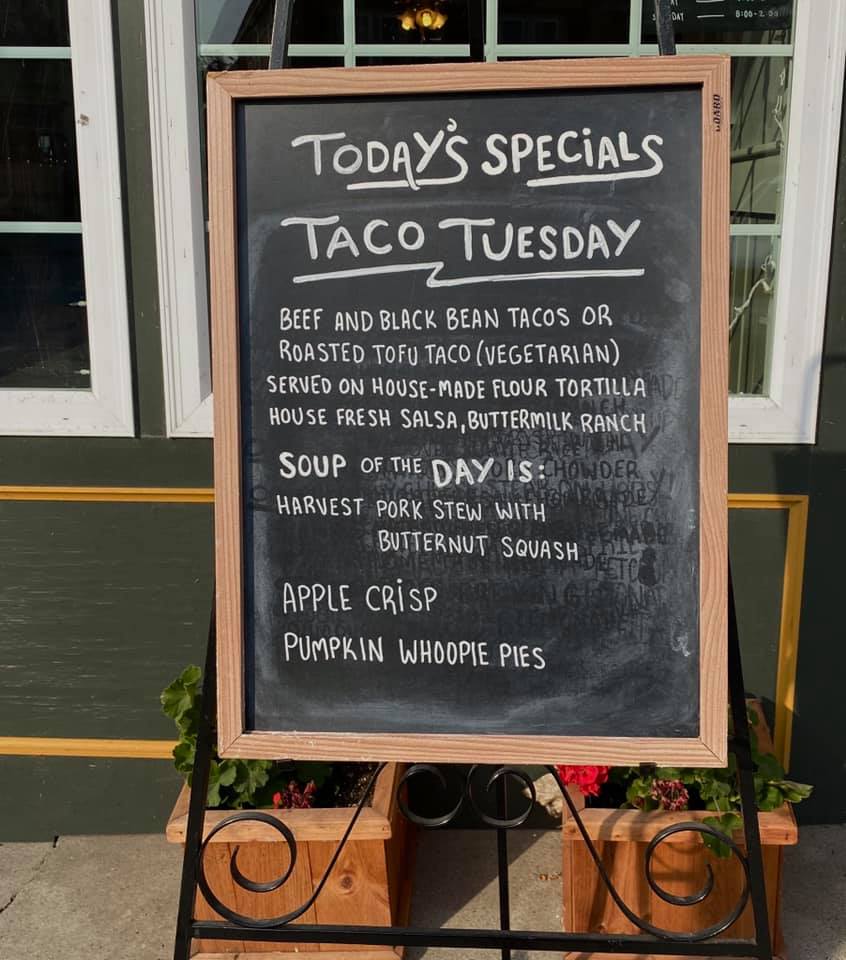 TODAY'S SPECIALS
TACO TUESDAY
BEEF AND BLACK BEAN TACOS OR
ROASTED TOFU TACO (VEGETARIAN)
SERVED ON HOUSE-MADE FLOUR TORTILLA
HOUSE FRESH SALSA, BUTTERMILK RANCH
SOUP OF THE DAY IS:
CHOWDER
HARVEST PORK STEW WITH
BUTTERNUT SQUASH
APPLE CRISP
PUMPKIN WHOOPIE PIES